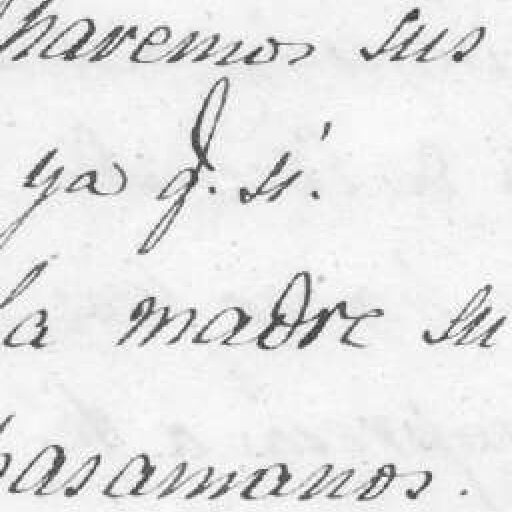 haremos sus
ya q. si.
la madre su
pasamanos.